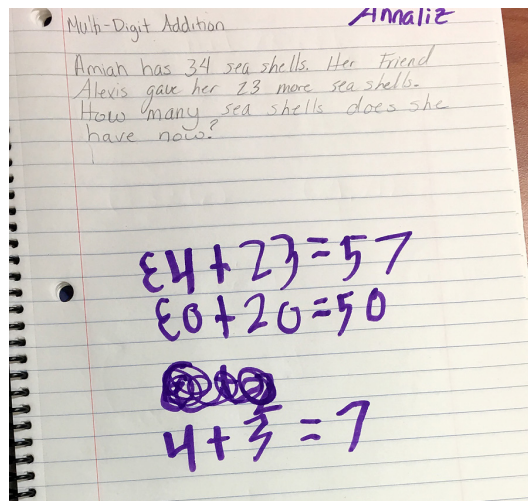 Multi-Digit Addition
Annaliz
Amiah has 34 sea shells. Her Friend
Alexis gave her 23 more sea shells.
How many sea shells does she
have now?
34+23=57
30+20=50
4+3=7